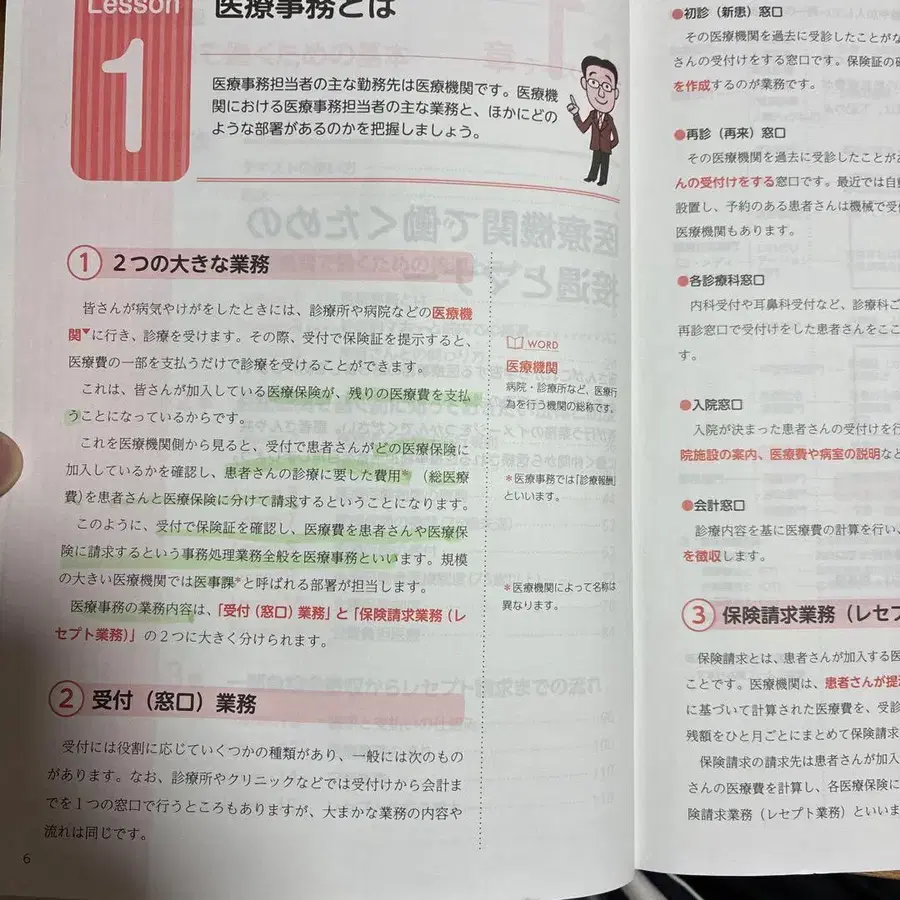 Lesson
1
医療事務とは
医療事務担当者の主な勤務先は医療機関です。医療機
関における医療事務担当者の主な業務と、ほかにどの
ような部署があるのかを把握しましょう。
① 2つの大きな業務
皆さんが病気やけがをしたときには、診療所や病院などの医療機
関▼に行き、診療を受けます。その際、受付で保険証を提示すると、
医療費の一部を支払うだけで診療を受けることができます。
これは、皆さんが加入している医療保険が、残りの医療費を支払
うことになっているからです。
これを医療機関側から見ると、受付で患者さんがどの医療保険に
加入しているかを確認し、患者さんの診療に要した費用*（総医療
費）を患者さんと医療保険に分けて請求するということになります。
このように、受付で保険証を確認し、医療費を患者さんや医療保
険に請求するという事務処理業務全般を医療事務といいます。規模
の大きい医療機関では医事課*と呼ばれる部署が担当します。
医療事務の業務内容は、「受付（窓口）業務」と「保険請求業務（レ
セプト業務）」の2つに大きく分けられます。
WORD
医療機関
病院・診療所など、医療行
為を行う機関の総称です。
*医療事務では「診療報酬」
といいます。
*医療機関によって名称は
異なります。
② 受付（窓口）業務
受付には役割に応じていくつかの種類があり、一般には次のもの
があります。なお、診療所やクリニックなどでは受付から会計ま
でを1つの窓口で行うところもありますが、大まかな業務の内容や
流れは同じです。
6
●初診（新患）窓口
その医療機関を過去に受診したことが
さんの受付けをする窓口です。保険証の
を作成するのが業務です。
●再診（再来）窓口
その医療機関を過去に受診したことが
んの受付けをする窓口です。最近では自
設置し、予約のある患者さんは機械で受
医療機関もあります。
●各診療科窓口
内科受付や耳鼻科受付など、診療科ご
再診窓口で受付けをした患者さんをここ
す。
●入院窓口
入院が決まった患者さんの受付けを行
院施設の案内、医療費や病室の説明など
●会計窓口
診療内容を基に医療費の計算を行い、
を徴収します。
③ 保険請求業務（レセプ
保険請求とは、患者さんが加入する医
ことです。医療機関は、患者さんが提
に基づいて計算された医療費を、受診
残額をひと月ごとにまとめて保険請求
保険請求の請求先は患者さんが加入
さんの医療費を計算し、各医療保険に
険請求業務（レセプト業務）といいま